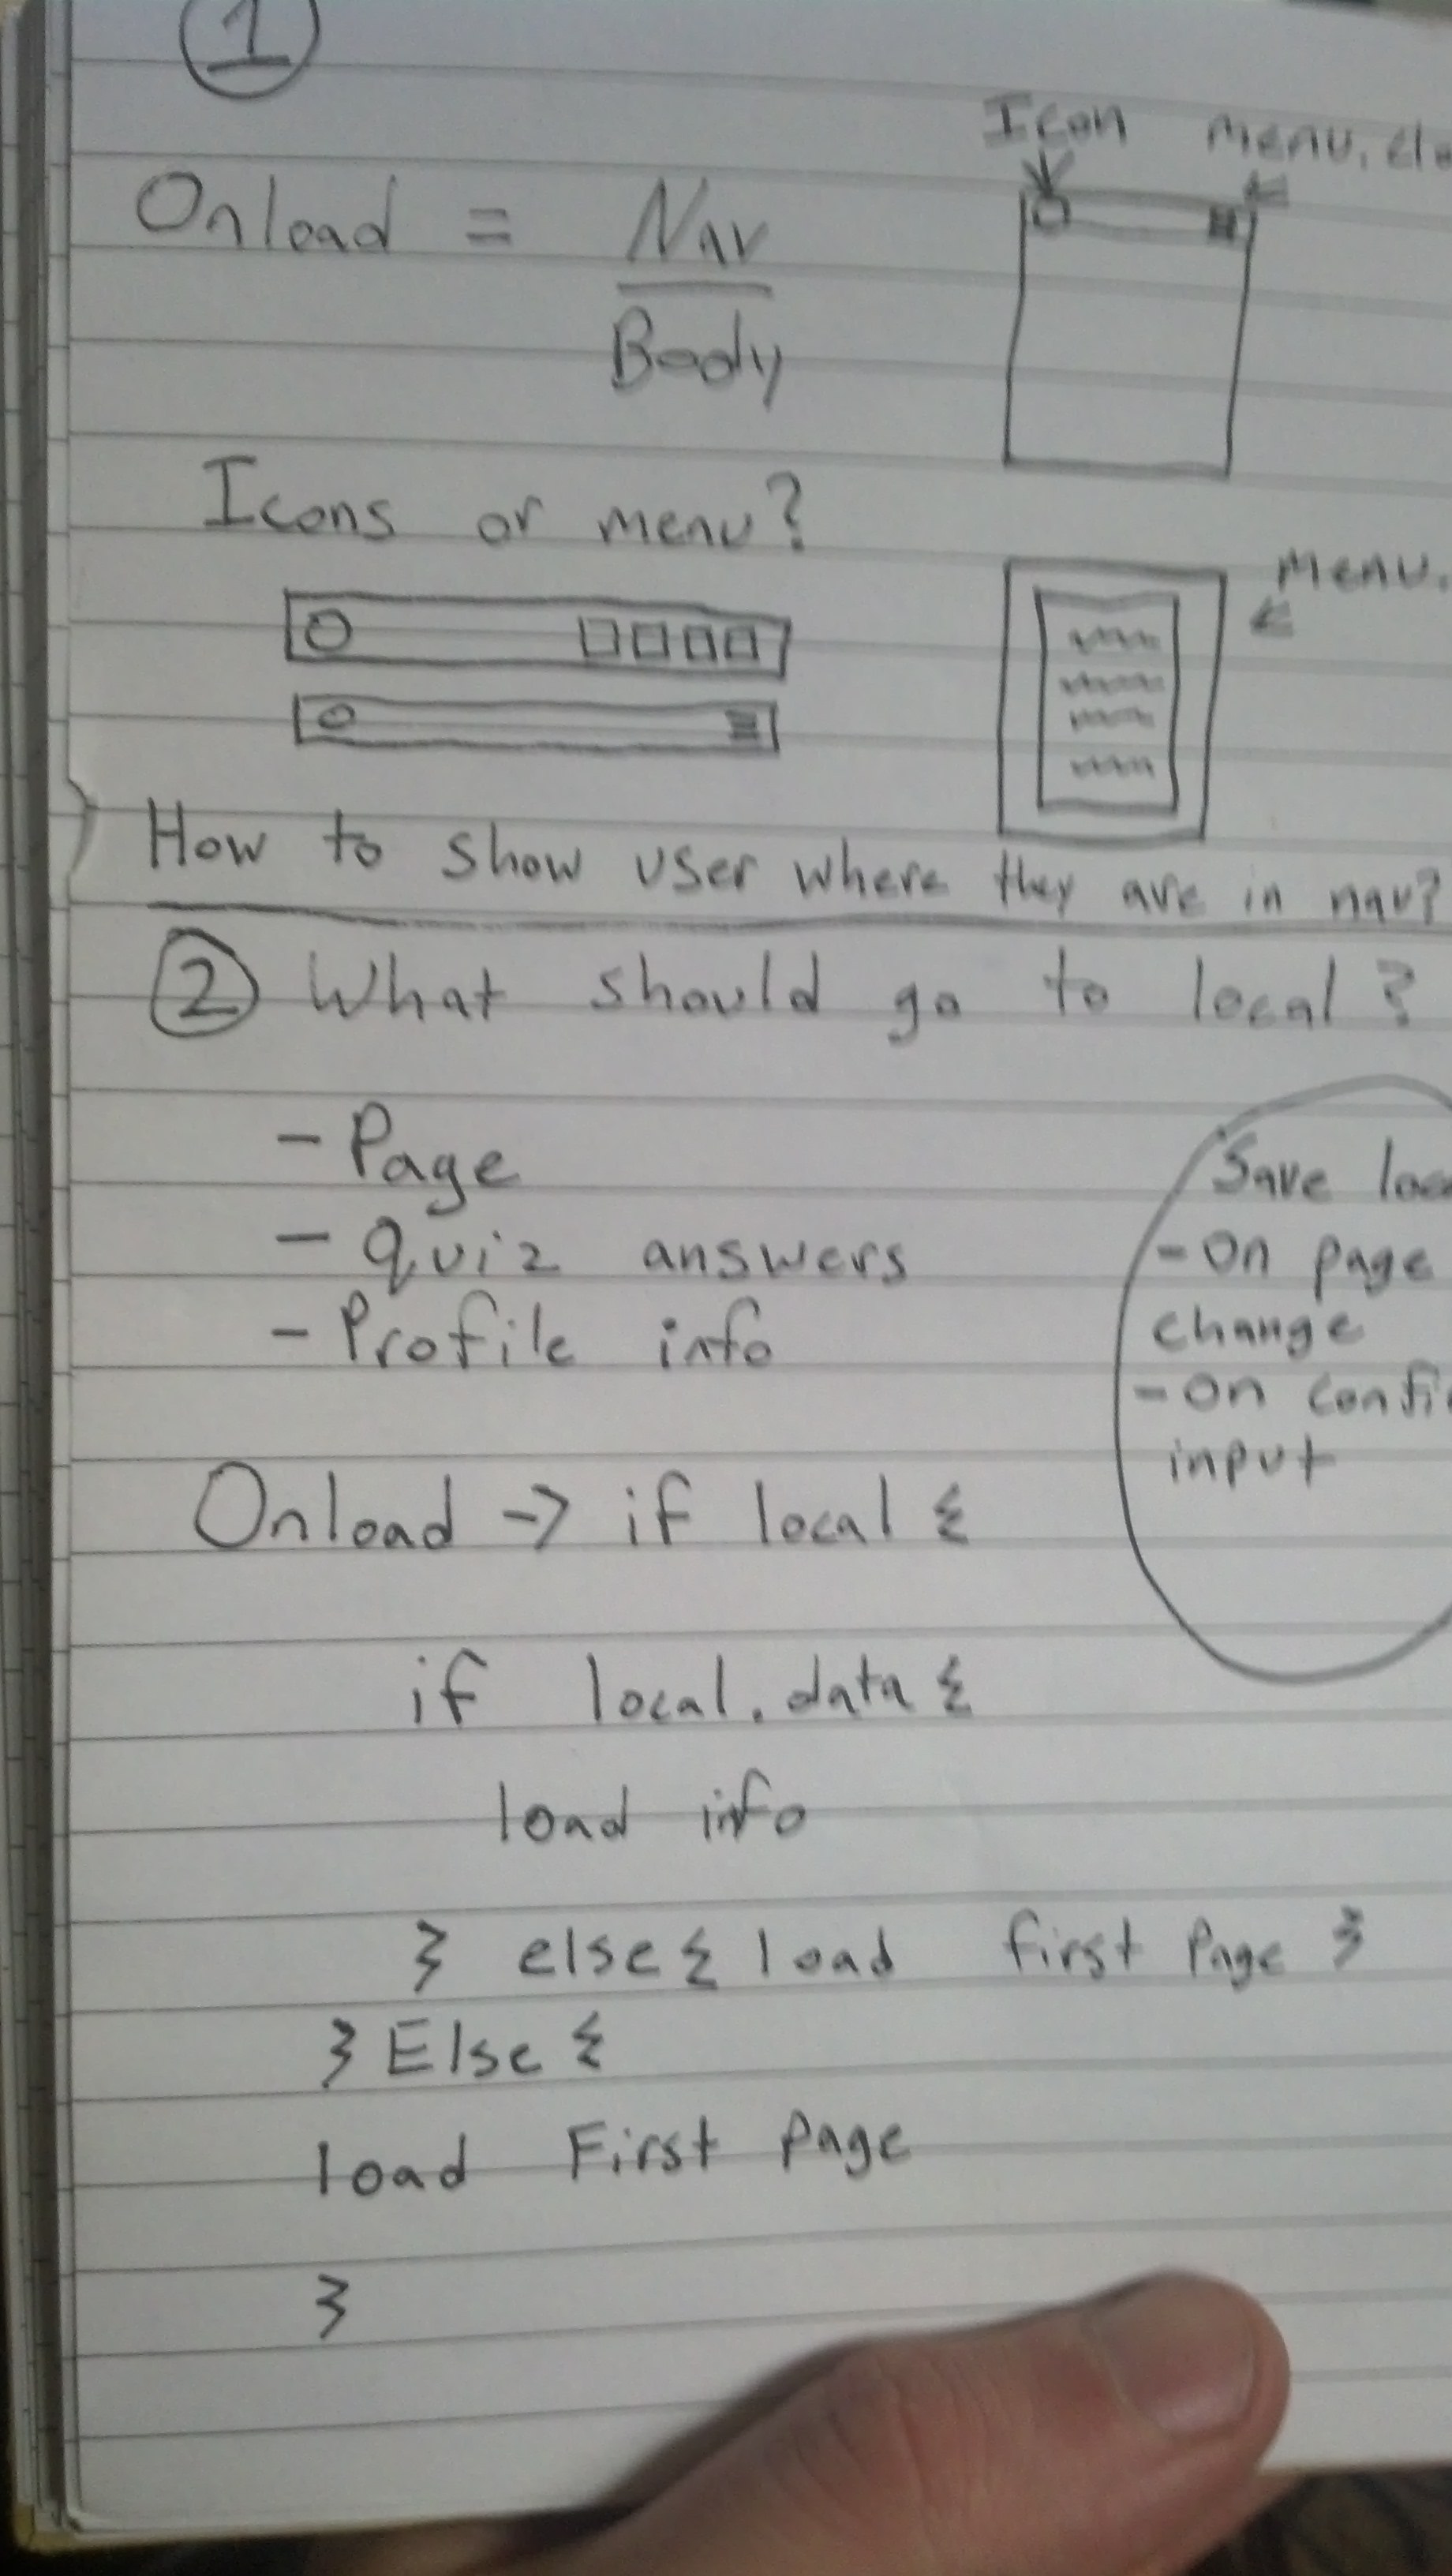 1
Icon menu,
Onload = Nav
Body
Icons or menu?
menu.
How to show user where they are in nav?
2 What should go to local?
- Page
- Quiz answers
- Profile info
Save
- On page
change
- On
input
Onload -> if local {
if local.data {
load info
} else { load first page }
} Else {
load First page
}